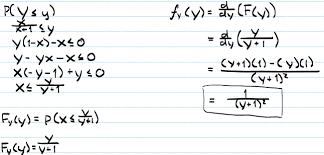 P(Y ≤ y)
x/(x+1) ≤ y
y(1-x)-x ≤ 0
y - yx - x ≤ 0
x(-y-1)+y ≤ 0
x ≤ y/(y+1)
F_Y(y) = P(x ≤ y/(y+1))
F_Y(y) = y/(y+1)
f_Y(y) = d/dy (F(y))
= d/dy (y/(y+1))
= ((y+1)(1) - (y)(1))/(y+1)²
= 1/(y+1)²